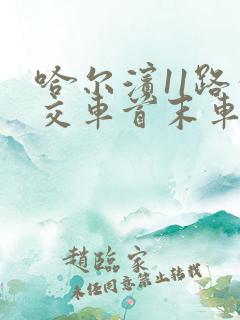 哈尔滨11路
交车首末车
趙臨家
未经同意禁止转载